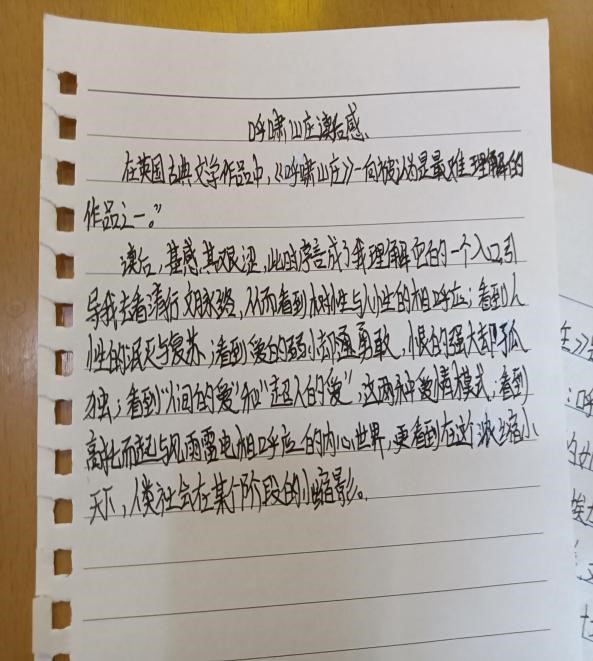 呼啸山庄读后感
在英国古典文学作品中,《呼啸山庄》一向被认为是最难理解的
作品之一。”
读后,甚感其艰涩,此时序言成了我理解它的一个入口,引
导我去看清行文脉络,从而看到树性与人性的相呼应;看到人
性的泯灭与复苏;看到爱的弱小却通勇敢,恨的强大却孤
独;看到“人间的爱”和“超人的爱”,这两种爱情模式;看到
高扎而起与风雨雷电相呼应的内心世界,更看到在这浓缩小
天下,人类社会在某个阶段的小缩影。